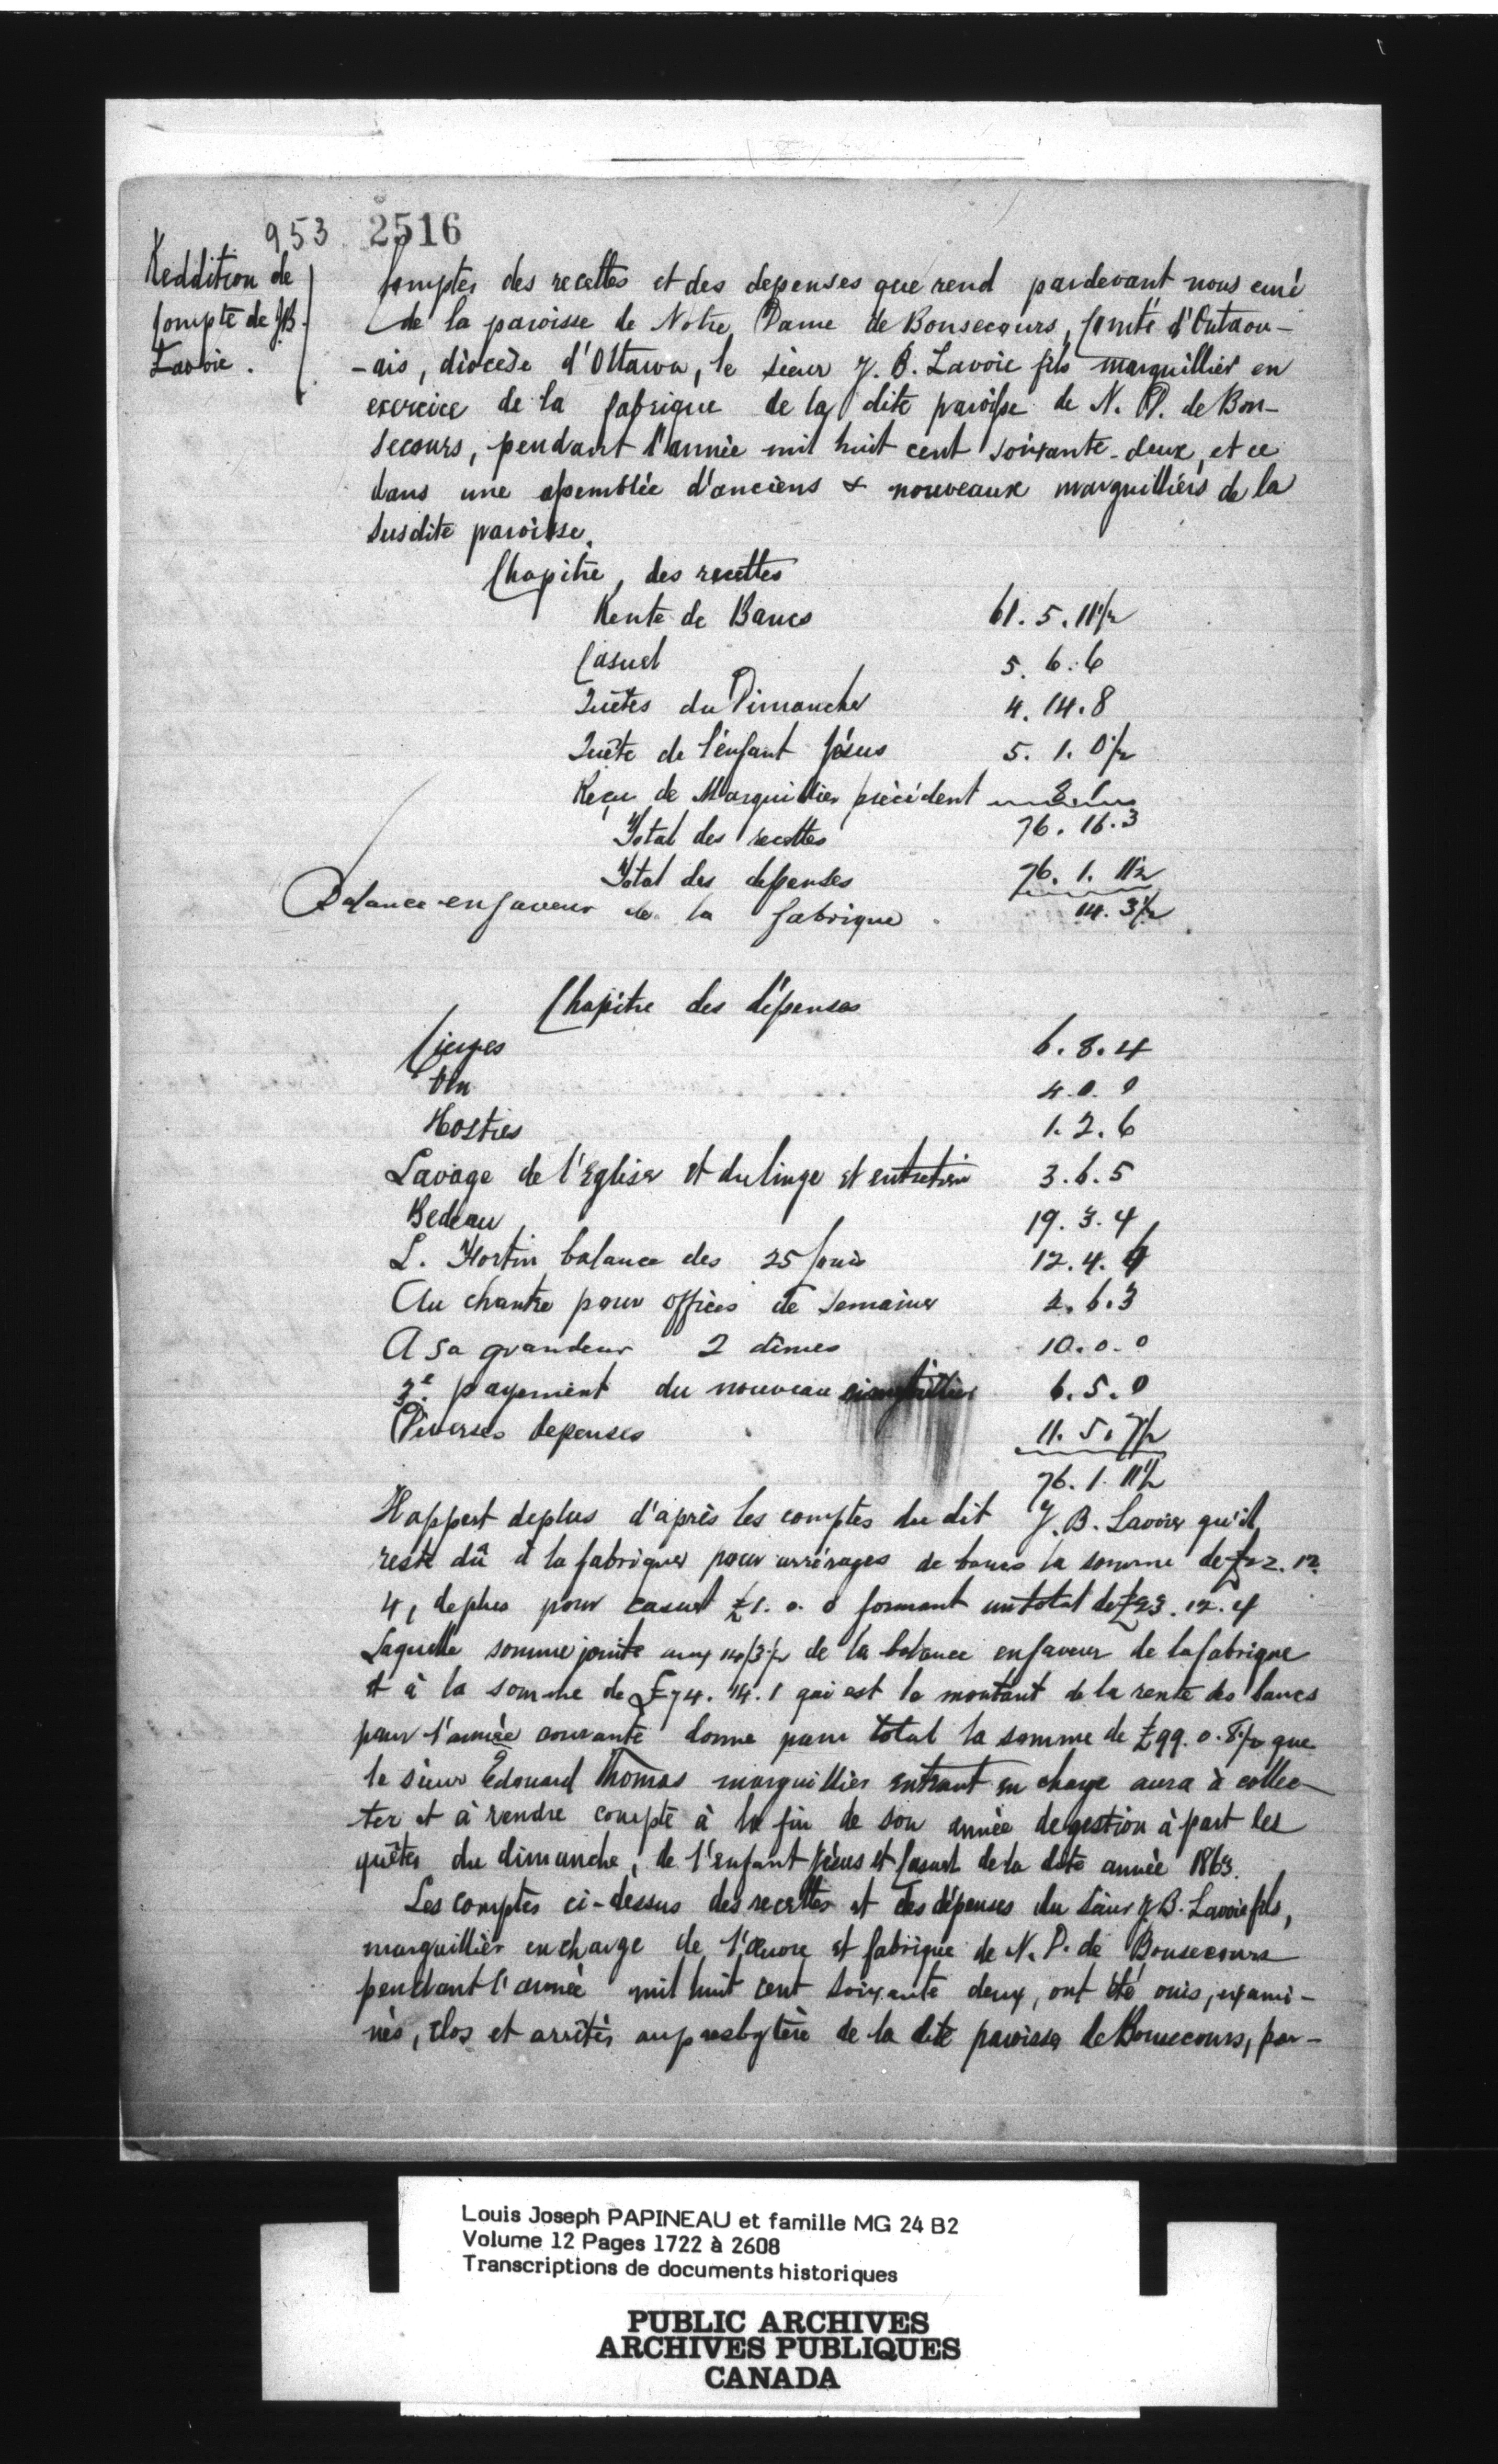 953 2516
Reddition de
Compte de J.B.
Lavoie.
Comptes des recettes et des depenses que rend pardevant nous curé
de la paroisse de Notre Dame de Bonsecours, Comté d'Outaou-
-ais, diocèse d'Ottawa, le sieur J. B. Lavoie fils marguillier en
exercice de la fabrique de la dite paroisse de N. D. de Bon-
secours, pendant l'année mil huit cent soixante-deux, et ce
dans une assemblée d'anciens & nouveaux marguilliers de la
susdite paroisse.
Chapitre, des recettes
Rente de Bancs 61. 5. 11½
Casuel 5. 6. 6
Quêtes du Dimanche 4. 14. 8
Quête de l'enfant Jésus 5. 1. 0½
Reçu de Marguillier précédent 8. 1
Total des recettes 76. 16. 3
Total des depenses 76. 1. 11½
Balance en faveur de la fabrique. 14. 3½
Chapitre des dépenses
Cierges 6. 8. 4
Vin 4. 0. 0
Hosties 1. 2. 6
Lavage de l'Eglise et du linge et entretien 3. 6. 5
Bedeau 19. 3. 4
L. Fortin balance des 25 Louis 12. 4. 4
Au chantre pour offices de semaine 2. 6. 3
A sa grandeur 2 dîmes 10. 0. 0
3e payement du nouveau 6. 5. 0
Diverses depenses 11. 5. 7½
76. 1. 11½
Il appert deplus d'après les comptes du dit J. B. Lavoie qu'il
reste dû à la fabrique pour arrérages de bancs la somme de £22. 12.
4, deplus pour casuel £1. 0. 0 formant un total de £23. 12. 4
Laquelle somme jointe aux 14/3½ de la balance en faveur de la fabrique
et à la somme de £74. 14. 1 qui est le montant de la rente des bancs
pour l'année courante donne pour total la somme de £99. 0. 8½ que
le sieur Edouard Thomas marguillier entrant en charge aura à collec-
ter et à rendre compte à la fin de son année de gestion à part les
quêtes du dimanche, de l'enfant Jésus et Casuel de la dite année 1863.
Les comptes ci-dessus des recettes et des dépenses du Sieur J.B. Lavoie fils,
marguillier en charge de l'œuvre et fabrique de N. D. de Bonsecours
pendant l'année mil huit cent soixante deux, ont été ouis, exami-
nés, clos et arrêtés au presbytère de la dite paroisse de Bonsecours, par-
Louis Joseph PAPINEAU et famille MG 24 B2
Volume 12 Pages 1722 à 2608
Transcriptions de documents historiques
PUBLIC ARCHIVES
ARCHIVES PUBLIQUES
CANADA